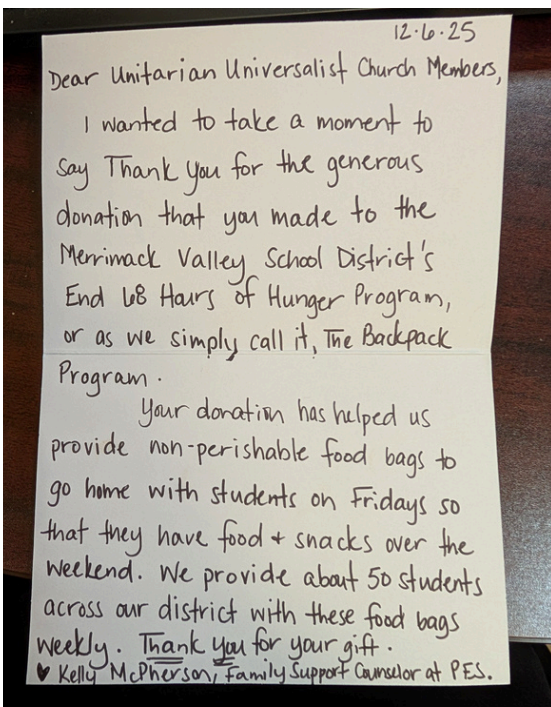 12.6.25
Dear Unitarian Universalist Church Members,
I wanted to take a moment to
say Thank you for the generous
donation that you made to the
Merrimack Valley School District's
End 68 Hours of Hunger Program,
or as we simply call it, The Backpack
Program.
Your donation has helped us
provide non-perishable food bags to
go home with students on Fridays so
that they have food + snacks over the
weekend. We provide about 50 students
across our district with these food bags
weekly. Thank you for your gift.
♥ Kelly McPherson, Family Support Counselor at PES.